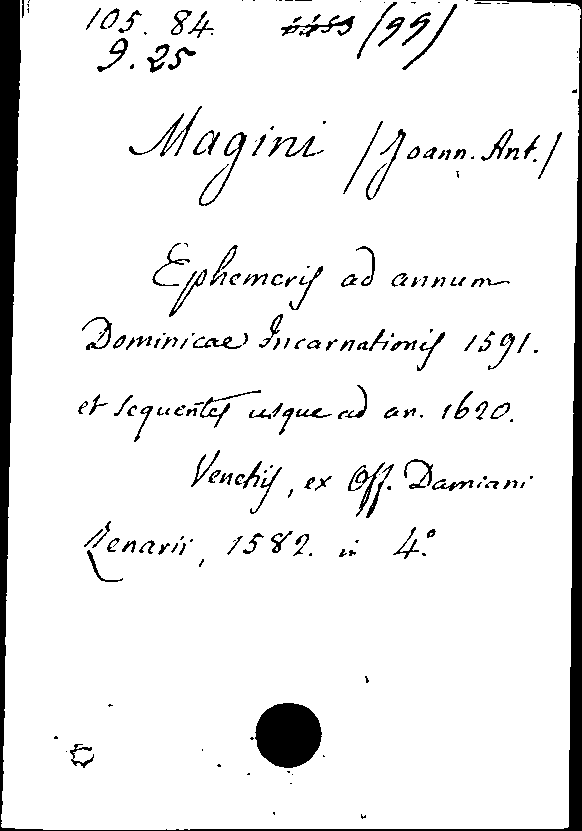 105. 84. (99)
9. 25
Magini (Joann. Ant.)
Ephemeris ad annum
Dominicae Incarnationis 1591.
et sequentes usque ad an. 1620.
Venetiis, ex Off. Damiani
Zenarii, 1582. in 4.º